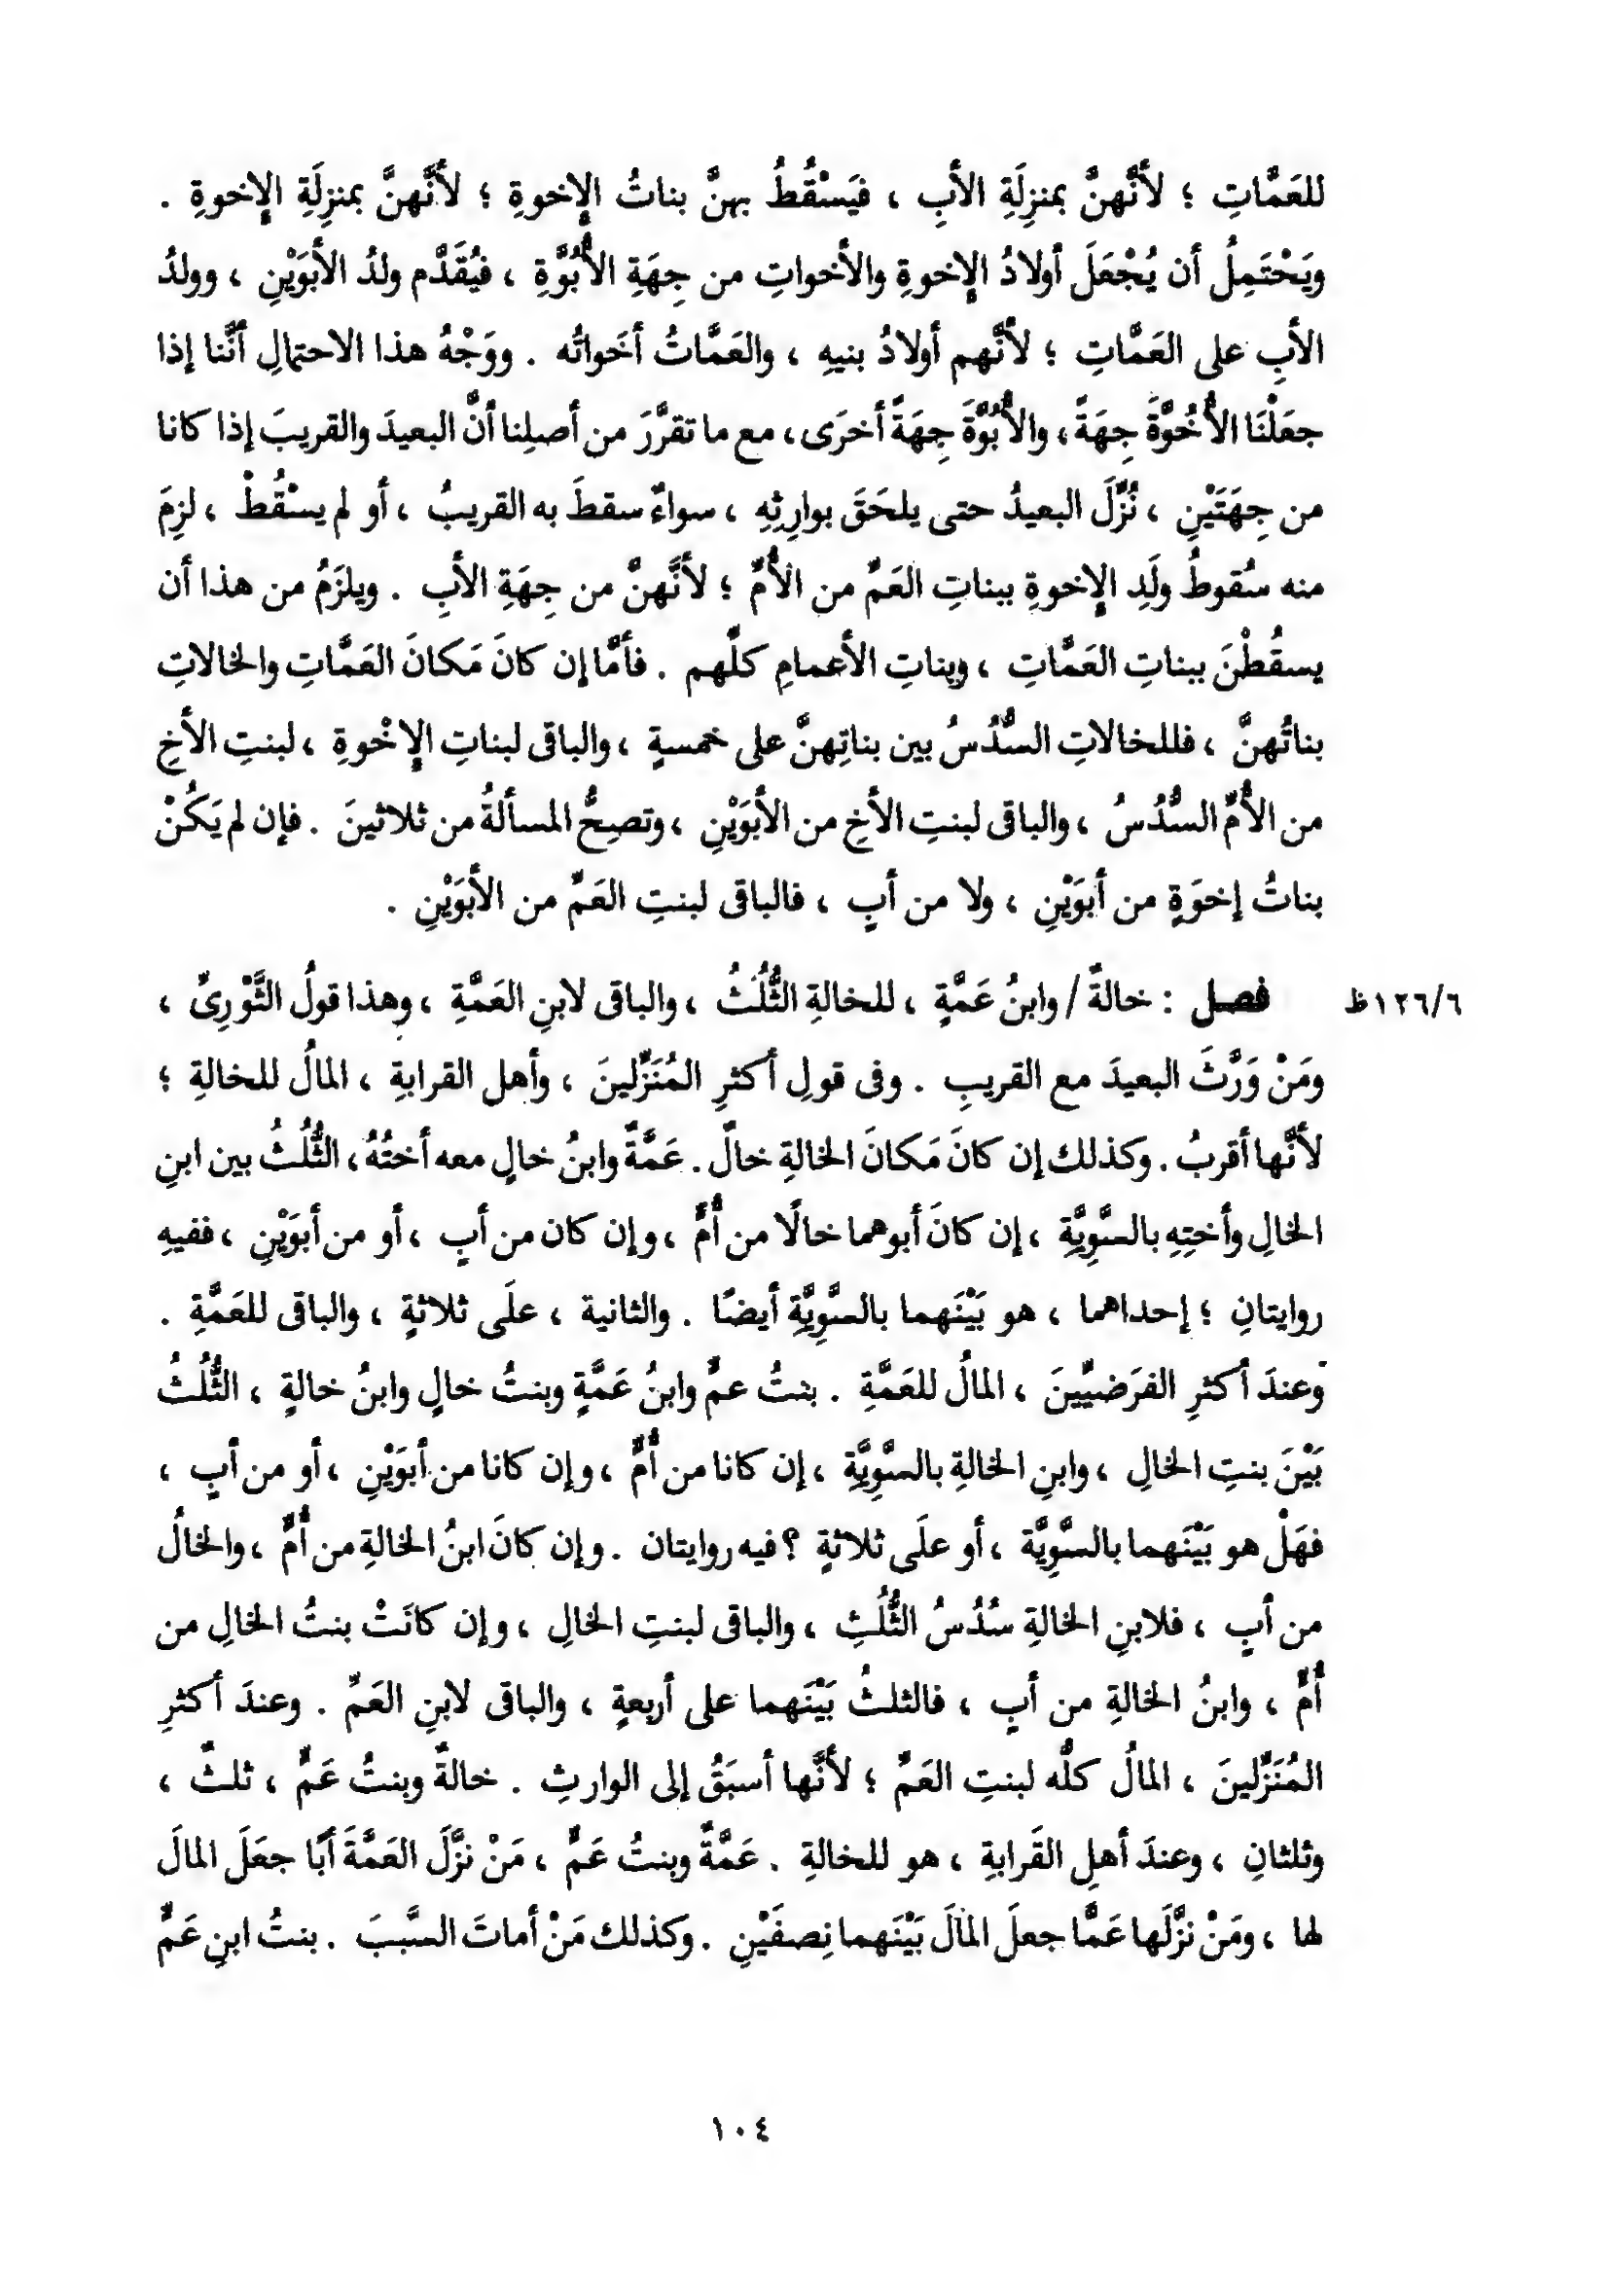 للعَمَّاتِ ؛ لأنَّهنَّ بمنزِلَةِ الأبِ ، فيَسْقُطُ بهنَّ بناتُ الإِخوةِ ؛ لأنَّهنَّ بمنزِلَةِ الإِخوةِ .
ويَحْتَمِلُ أن يُجْعَلَ أولادُ الإِخوةِ والأخواتِ من جِهَةِ الأُبُوَّةِ ، فيُقَدَّم ولدُ الأبَوَيْنِ ، وولدُ
الأبِ على العَمَّاتِ ؛ لأنَّهم أولادُ بنيهِ ، والعَمَّاتُ أخَواتُه . ووَجْهُ هذا الاحتمالِ أنَّنا إذا
جعَلْنَا الأُخُوَّةَ جِهَةً ، والأُبُوَّةَ جِهَةً أخرَى ، مع ما تقرَّرَ من أصلِنا أنَّ البعيدَ والقريبَ إذا كانا
من جِهَتَيْنِ ، نُزِّلَ البعيدُ حتى يلحَقَ بوارِثِهِ ، سواءٌ سقطَ به القريبُ ، أو لم يسْقُطْ ، لزِمَ
منه سُقوطُ ولَدِ الإِخوةِ ببناتِ العَمِّ من الأُمِّ ؛ لأنَّهنَّ من جِهَةِ الأبِ . ويلزَمُ من هذا أن
يسقُطْنَ ببناتِ العَمَّاتِ ، وبناتِ الأعمامِ كلِّهم . فأمَّا إن كانَ مَكانَ العَمَّاتِ والخالاتِ
بناتُهنَّ ، فللخالاتِ السُّدُسُ بين بناتِهنَّ على خمسةٍ ، والباقى لبناتِ الإِخْوةِ ، لبنتِ الأخِ
من الأُمِّ السُّدُسُ ، والباقى لبنتِ الأخِ من الأبَوَيْنِ ، وتصِحُّ المسألةُ من ثلاثينَ . فإن لم يَكُنْ
بناتُ إخوَةٍ من أبَوَيْنِ ، ولا من أبٍ ، فالباقى لبنتِ العَمِّ من الأبَوَيْنِ .
١٢٦/٦ظ فصل : خالةٌ / وابنُ عَمَّةٍ ، للخالةِ الثُّلُثُ ، والباقى لابنِ العَمَّةِ ، وهذا قولُ الثَّوْرِىِّ ،
ومَنْ وَرَّثَ البعيدَ مع القريبِ . وفى قولِ أكثرِ المُنَزِّلينَ ، وأهل القرابةِ ، المالُ للخالةِ ؛
لأنَّها أقربُ . وكذلك إن كانَ مَكانَ الخالةِ خالٌ . عَمَّةٌ وابنُ خالٍ معه أختُهُ ، الثُّلُثُ بين ابنِ
الخالِ وأختِهِ بالسَّوِيَّةِ ، إن كانَ أبوهما خالًا من أُمٍّ ، وإن كان من أبٍ ، أو من أبَوَيْنِ ، ففيهِ
روايتانِ ؛ إحداهما ، هو بَيْنَهما بالسَّوِيَّةِ أيضًا . والثانية ، علَى ثلاثةٍ ، والباقى للعَمَّةِ .
وعندَ أكثرِ الفرَضيِّينَ ، المالُ للعَمَّةِ . بنتُ عمٍّ وابنُ عَمَّةٍ وبنتُ خالٍ وابنُ خالةٍ ، الثُّلُثُ
بَيْنَ بنتِ الخالِ ، وابنِ الخالةِ بالسَّوِيَّةِ ، إن كانا من أُمٍّ ، وإن كانا من أبَوَيْنِ ، أو من أبٍ ،
فهَلْ هو بَيْنَهما بالسَّوِيَّة ، أو علَى ثلاثةٍ ؟ فيه روايتان . وإن كانَ ابنُ الخالةِ من أُمٍّ ، والخالُ
من أبٍ ، فلابنِ الخالةِ سُدُسُ الثُّلُثِ ، والباقى لبنتِ الخالِ ، وإن كانَتْ بنتُ الخالِ من
أُمٍّ ، وابنُ الخالةِ من أبٍ ، فالثلثُ بَيْنَهما على أربعةٍ ، والباقى لابنِ العَمِّ . وعندَ أكثرِ
المُنَزِّلينَ ، المالُ كلُّه لبنتِ العَمِّ ؛ لأنَّها أسبَقُ إلى الوارثِ . خالةٌ وبنتُ عَمٍّ ، ثلثٌ ،
وثلثانِ ، وعندَ أهلِ القَرابةِ ، هو للخالةِ . عَمَّةٌ وبنتُ عَمٍّ ، مَنْ نزَّلَ العَمَّةَ أبًا جعَلَ المالَ
لها ، ومَنْ نزَّلَها عَمًّا جعلَ المالَ بَيْنَهما نِصفَيْنِ . وكذلك مَنْ أماتَ السَّببَ . بنتُ ابنِ عَمٍّ
١٠٤